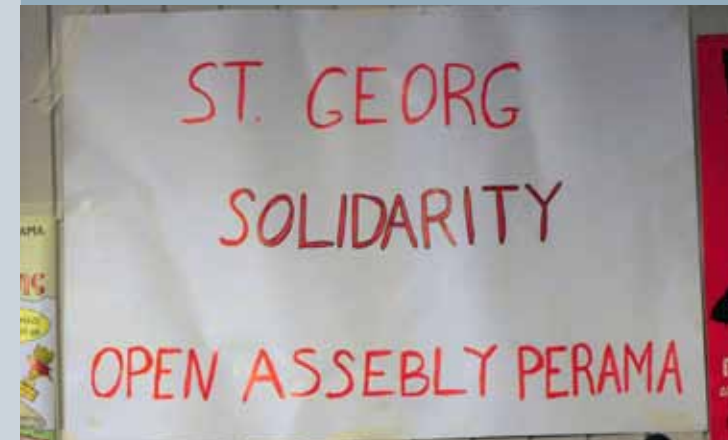 ST. GEORG
SOLIDARITY
OPEN ASSEBLY PERAMA